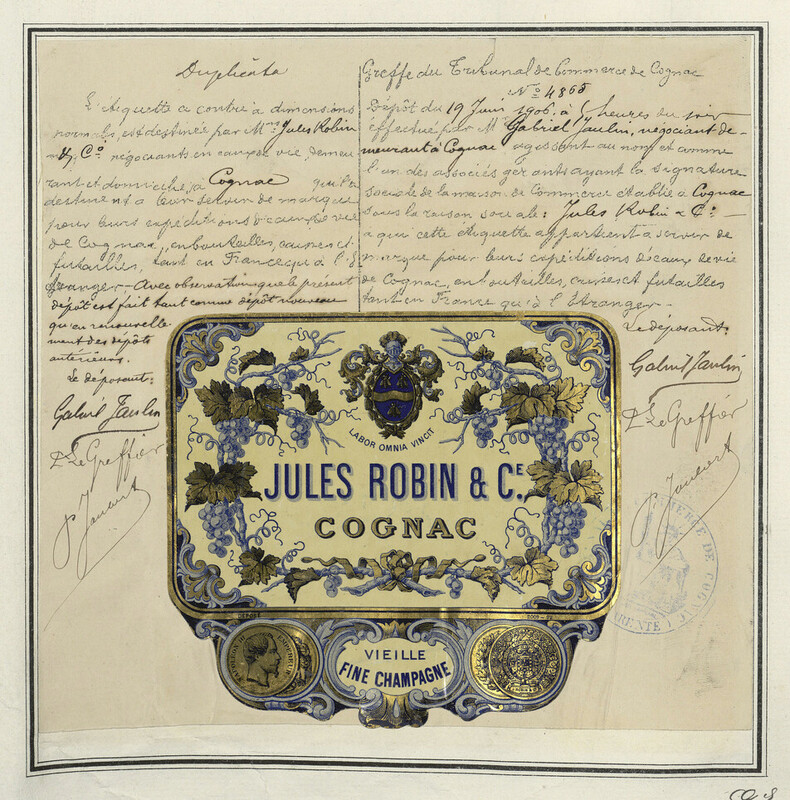 Duplicata
L'étiquette ci contre à dimensions
normales, est destinée par Mrs Jules Robin
& Co négociants en eaux de vie, demeu
rant et domiciliés à Cognac qui la
destinent à leur servir de marque
pour leurs expéditions d'eaux de vie
de Cognac, en bouteilles, caisses et
futailles, tant en France qu'à l'É
tranger - Avec observation que le présent
dépôt est fait tant comme dépôt nouveau
qu'en renouvelle
ment des dépôts
antérieurs.
Le déposant:
Gabriel Jaulin
Le Greffier
Greffe du Tribunal de Commerce de Cognac
No 4865
Dépôt du 19 Juin 1906 à heures du soir
effectué par Mr Gabriel Jaulin, négociant de-
meurant à Cognac agissant au nom et comme
l'un des associés gérants ayant la signature
sociale de la maison de Commerce établie à Cognac
sous la raison sociale: Jules Robin & Co
à qui cette étiquette appartient à servir de
marque pour leurs expéditions d'eaux de vie
de Cognac, en bouteilles, caisses et futailles
tant en France qu'à l'Étranger -
Le déposant:
Gabriel Jaulin
Le Greffier
LABOR OMNIA VINCIT
JULES ROBIN & CE.
COGNAC
NAPOLEON III EMPEREUR
VIEILLE
FINE CHAMPAGNE
COMMERCE DE COGNAC